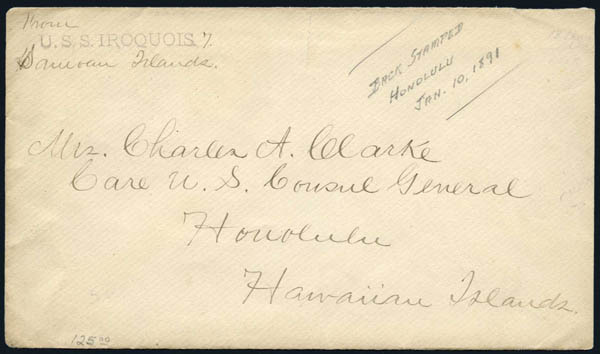 From
U.S.S. IROQUOIS
Samoan Islands.
BACK STAMPED
HONOLULU
JAN. 10, 1891
Mrs. Charles A. Clarke
Care U. S. Consul General
Honolulu
Hawaiian Islands.
125⁰⁰